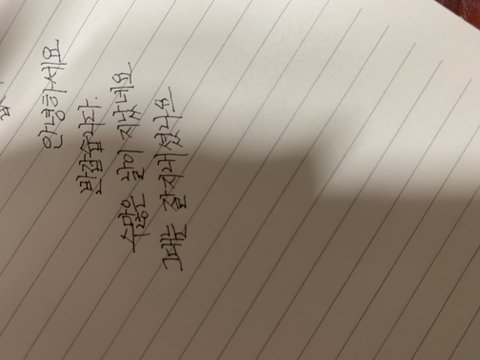 안녕하세요
반갑습니다.
수많은 날이 지났네요
그대는 잘지내셨나요